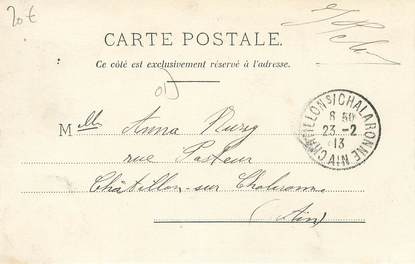 20 €
CARTE POSTALE.
Ce côté est exclusivement réservé à l'adresse.
Mlle Anna
rue Pasteur
Châtillon-sur Chalaronne
(Ain)
CHATILLON S/ CHALARONNE
8 50
23 - 2
13
AIN